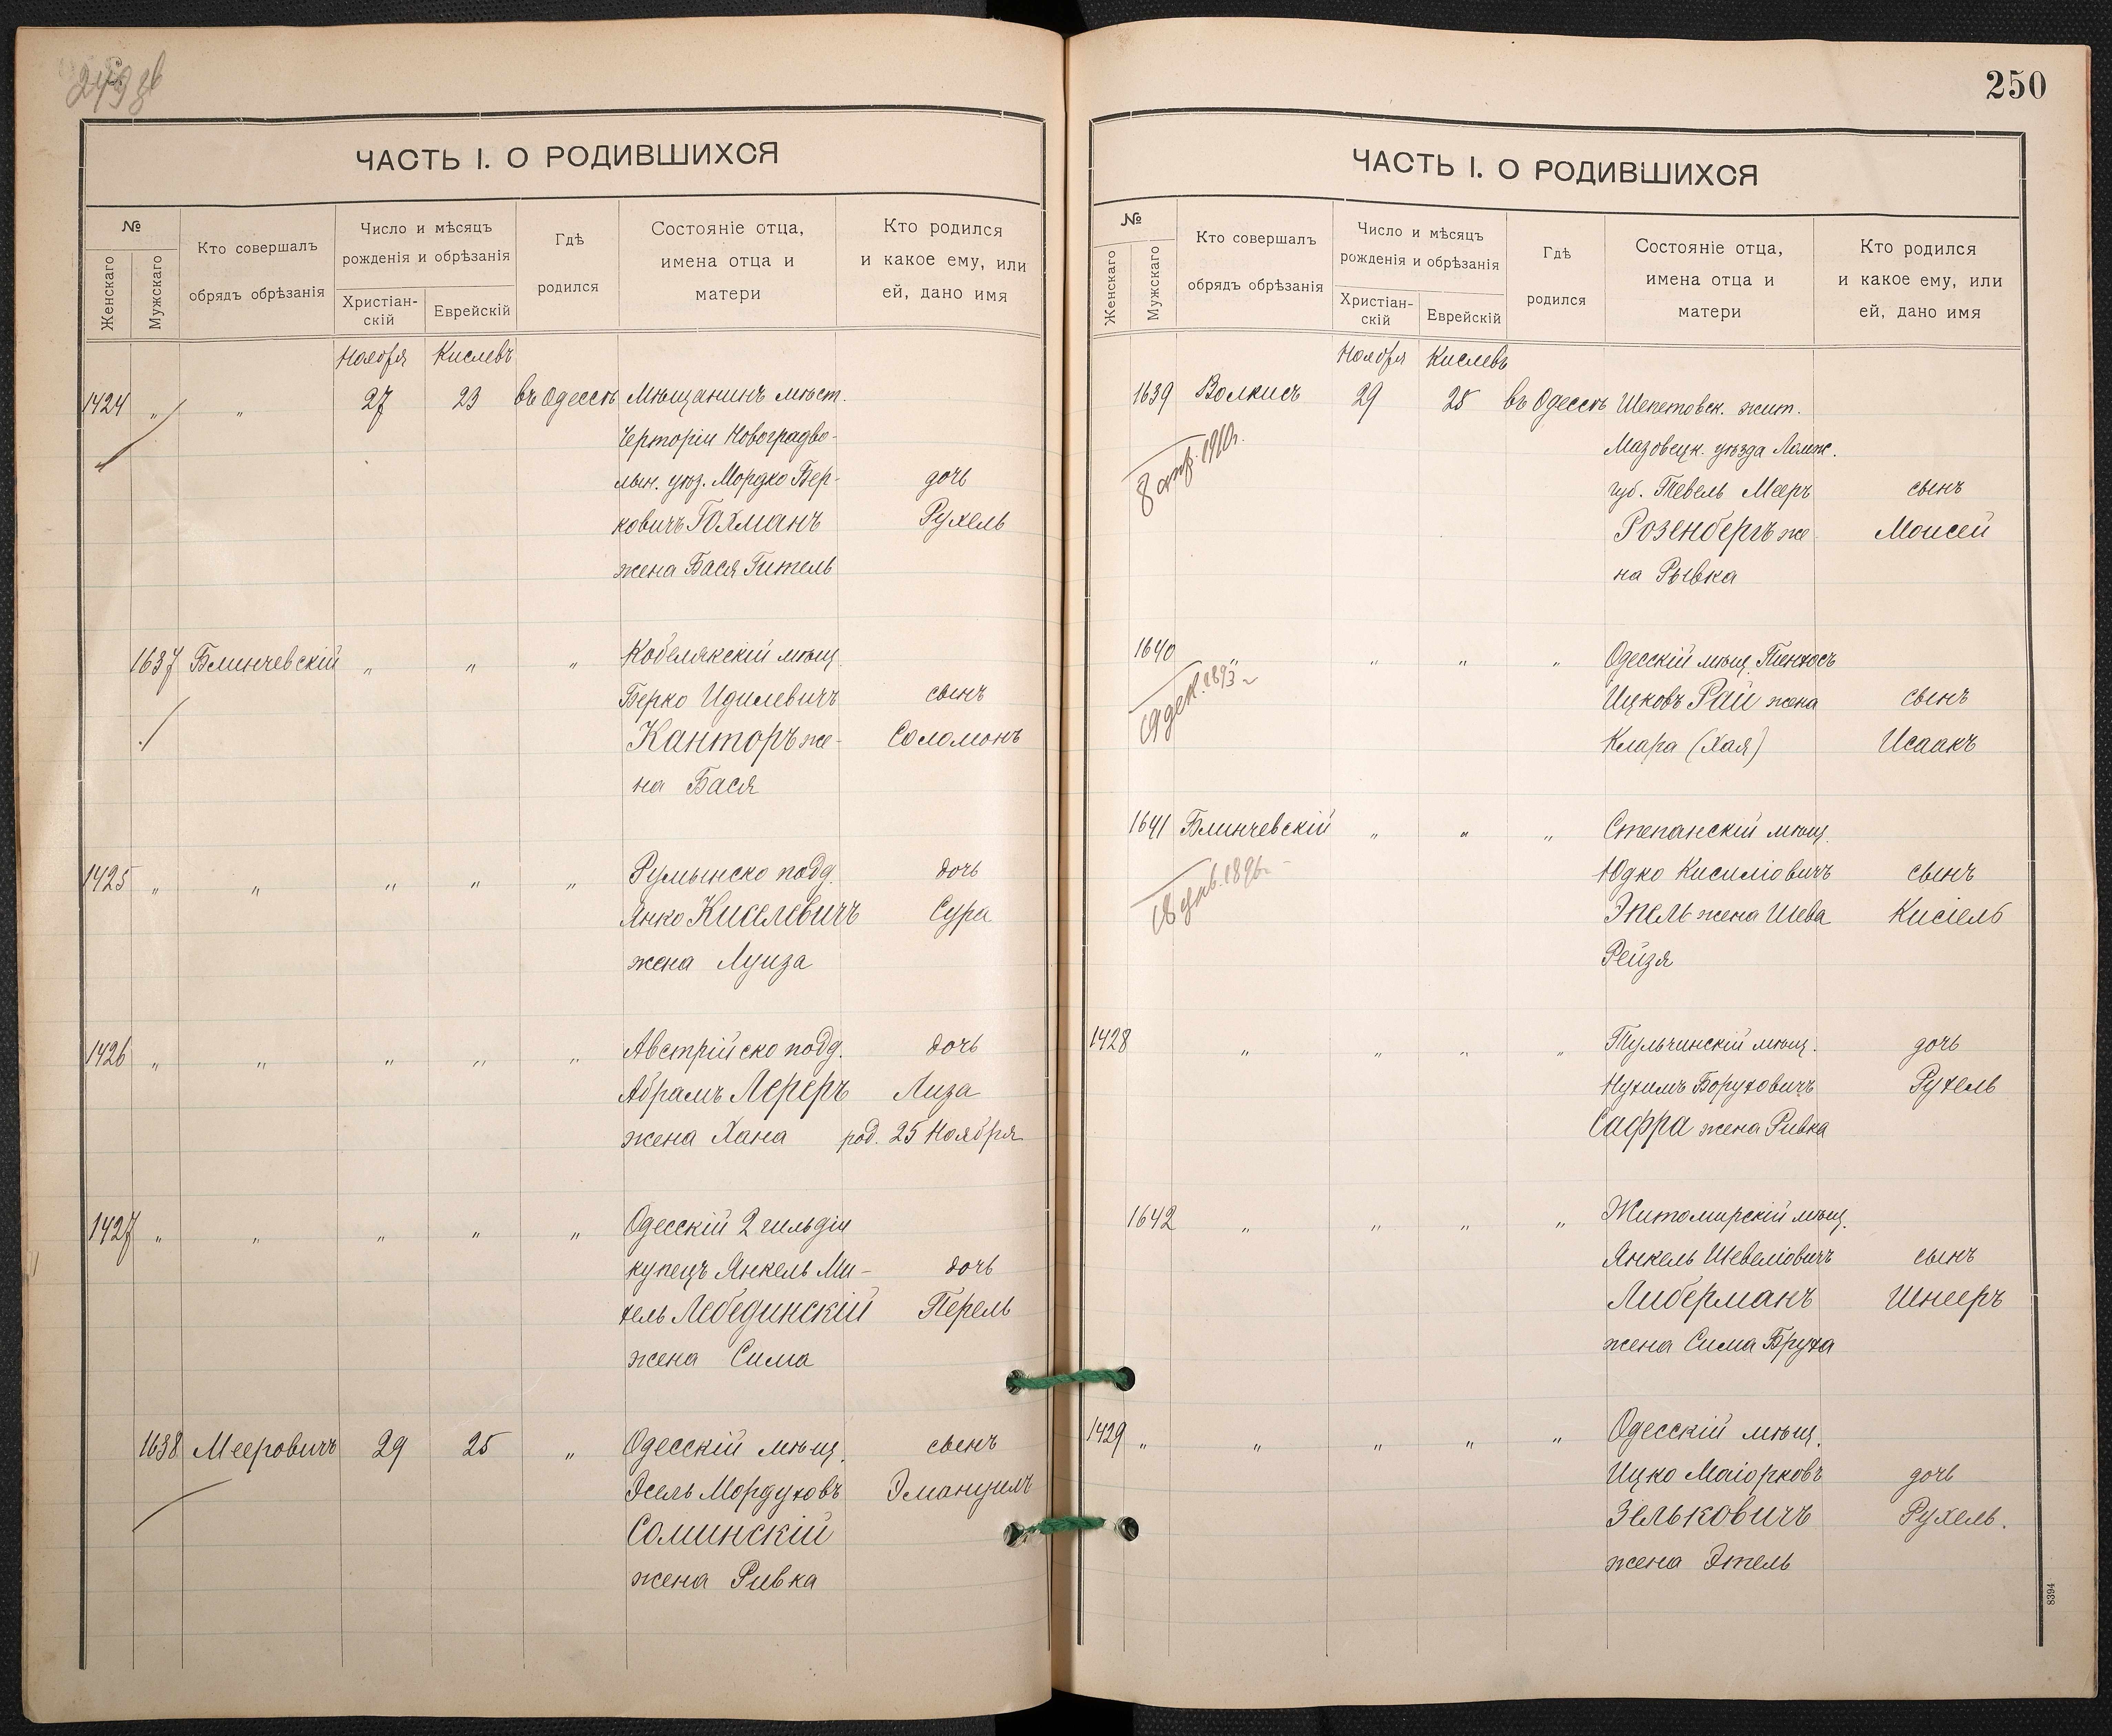 249 об
ЧАСТЬ I. О РОДИВШИХСЯ
№
Женскаго
Мужскаго
Кто совершалъ
обрядъ обрѣзанія
Число и мѣсяцъ
рожденія и обрѣзанія
Христіан-
скій
Еврейскій
Гдѣ
родился
Состояніе отца,
имена отца и
матери
Кто родился
и какое ему, или
ей, дано имя
Ноября Кислевъ
1424 " " 27 23 въ Одессѣ Мѣщанинъ мѣст.
Черторіи Новоградво-
лын. уѣз. Мордко Бер- дочь
ковичъ Гохманъ Рухель
жена Бася Гитель
1637 Блинчевскій " " " Кобелякскій мѣщ.
Берко Идилевичъ сынъ
Канторъ же- Соломонъ
на Бася
1425 " " " " " Румынско подд. дочь
Янко Киселевичъ Сура
жена Луиза
1426 " " " " " Австрійско подд. дочь
Абрамъ Лереръ Лиза
жена Хана род. 25 Ноября
1427 " " " " " Одесскій 2 гильдіи
купецъ Янкель Ми- дочь
хель Лебединскій Перель
жена Сима
1638 Мееровичъ 29 25 " Одесскій мѣщ. сынъ
Эсель Мордуховъ Эмануилъ
Соминскій
жена Ривка
250
ЧАСТЬ I. О РОДИВШИХСЯ
№
Женскаго
Мужскаго
Кто совершалъ
обрядъ обрѣзанія
Число и мѣсяцъ
рожденія и обрѣзанія
Христіан-
скій
Еврейскій
Гдѣ
родился
Состояніе отца,
имена отца и
матери
Кто родился
и какое ему, или
ей, дано имя
Ноября Кислевъ
1639 Волкисъ 29 25 въ Одессѣ Шепетовск. жит.
8 апр. 1910г. Мазовецк. уѣзда Ломж.
губ. Тевель Мееръ сынъ
Розенбергъ же- Моисей
на Рывка
1640 " " " " Одесскій мѣщ. Пинхосъ
19 дек. 1893 г. Ицковъ Рай жена сынъ
Клара (Хая) Исаакъ
1641 Блинчевскій " " " Степанскій мѣщ.
18 1896г. Юдко Кисиліовичъ сынъ
Эпель жена Шева Кисіель
Рейзя
1428 " " " " Тульчинскій мѣщ. дочь
Нухимъ Боруховичъ Рухель
Сафра жена Ривка
1642 " " " " Житомирскій мѣщ.
Янкель Шевеліовичъ сынъ
Либерманъ Шнееръ
жена Сима Бруха
1429 " " " " " Одесскій мѣщ.
Ицко Маіорковъ дочь
Зельковичъ Рухель.
жена Этель
8394